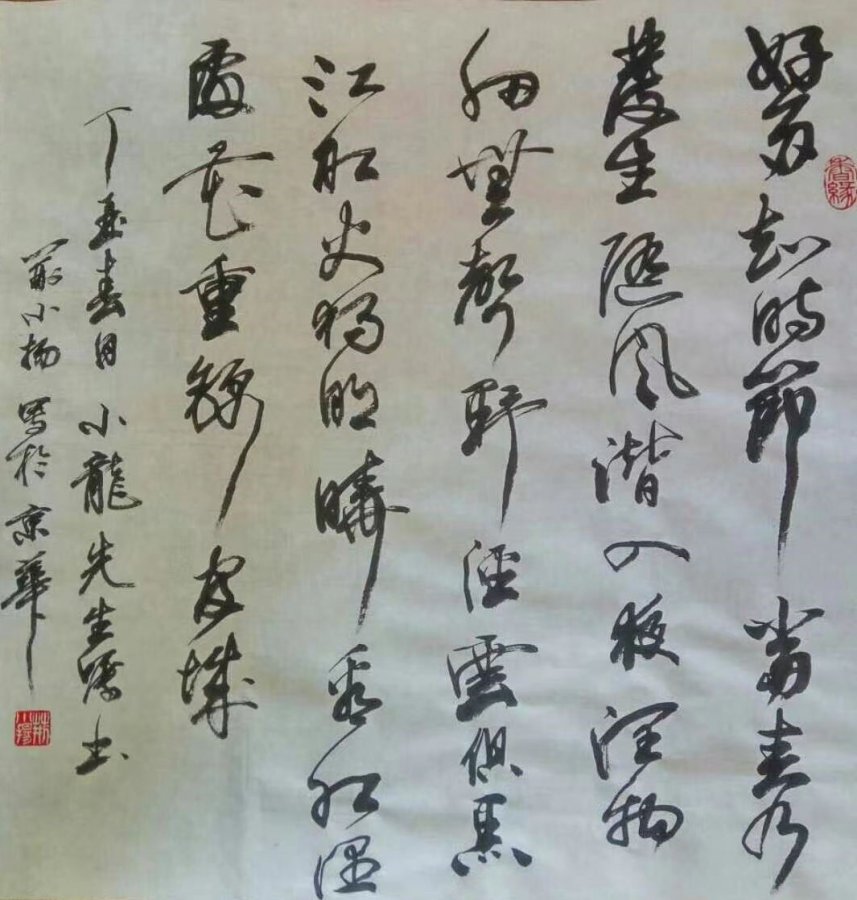 好雨知時節當春乃
發生隨風潛入夜潤物
細無聲野徑雲俱黑
江船火獨明曉看紅濕
處花重錦官城
丁酉春日小龍先生囑書
荊小揚寫於京華
書緣
荊小揚